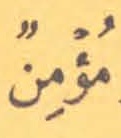 مُؤْمِنٌ